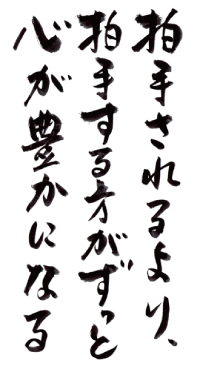 拍手されるより、
拍手する方がずっと
心が豊かになる